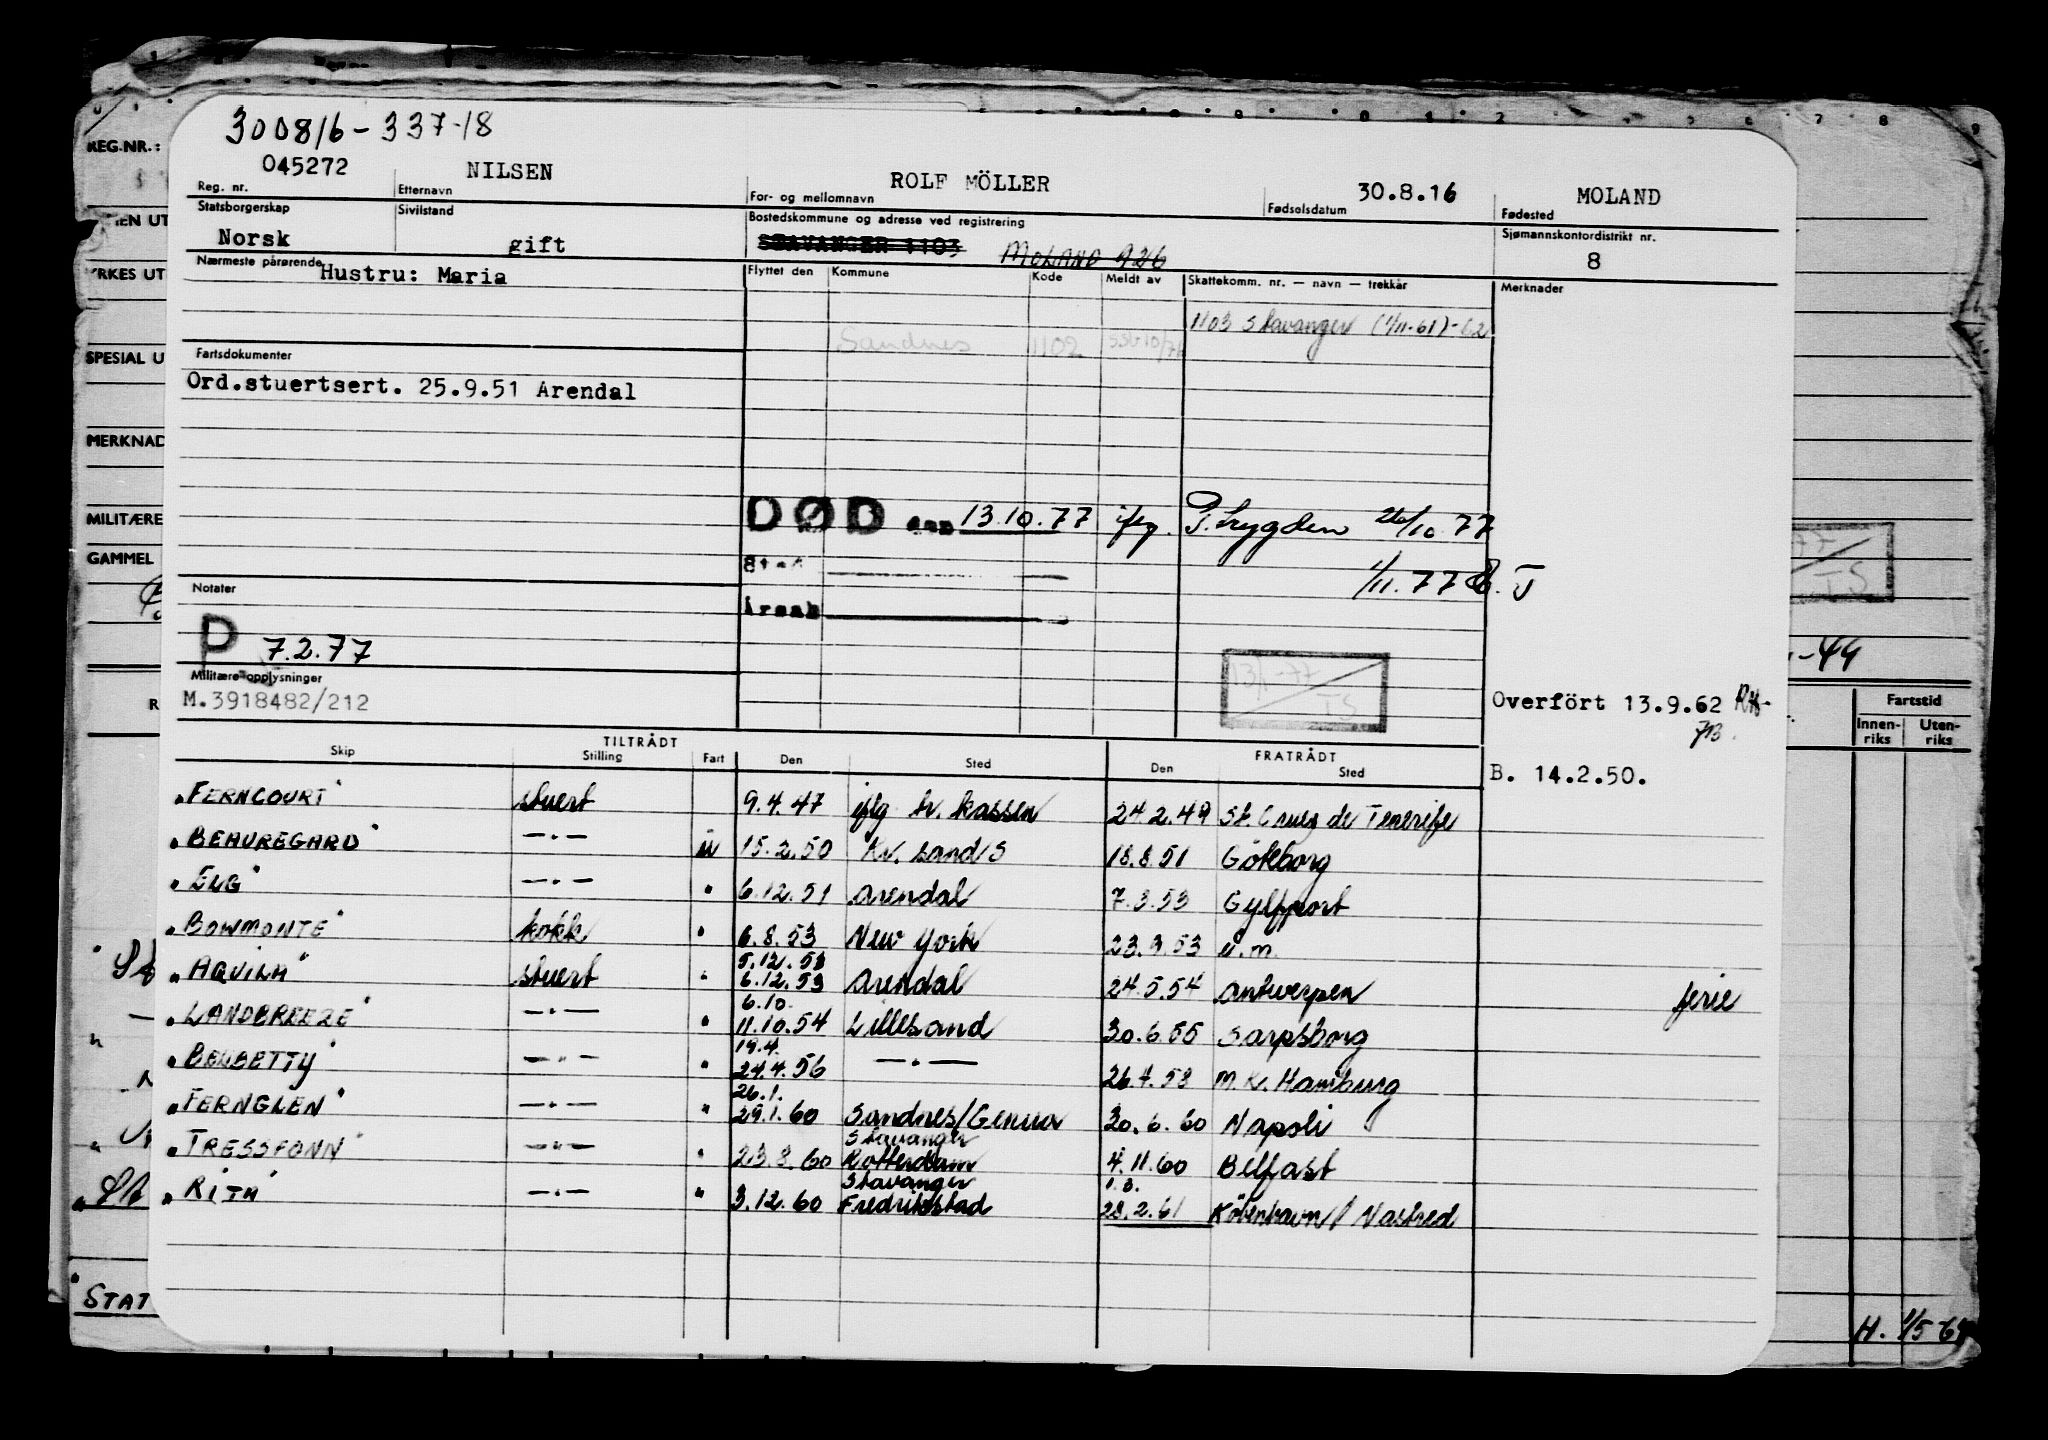 300816-337-18
REG.NR.:
045272 NILSEN ROLF MÖLLER 30.8.16 MOLAND
Reg. nr. Etternavn For- og mellomnavn Fødselsdatum Fødested
Statsborgerskap Sivilstand Bostedskommune og adresse ved registrering Sjømannskontordistrikt nr.
Norsk gift STAVANGER 1103 MOLAND 926 8
Nærmeste pårørende Hustru: Maria Flyttet den Kommune Kode Meldt av Skattekomm. nr. — navn — trekkår Merknader
1103 Stavanger (1/11-61)-62
Sandnes 1102
Fartsdokumenter
Ord.stuertsert. 25.9.51 Arendal
SPESIAL U
MERKNAD
MILITÆRE
GAMMEL
DØD den 13.10.77 ifg. P. Lygden 26/10.77
Sted
1/11.77
Årsak
Notater
P 7.2.77
Militære opplysninger
M.3918482/212
13/1-77
TS
Overført 13.9.62
-44
Fartstid
Innen-riks Uten-riks
TILTRÅDT FRATRÅDT
Skip Stilling Fart Den Sted Den Sted
B. 14.2.50.
"FERNCOURT" stuert 9.4.47 iflg tr. kassen 24.2.49 St. Cruz de Tenerife
"BEAUREGARD" —"— u 15.2.50 Kr. sand S 18.8.51 Göteborg
"ELG" —"— " 6.12.51 Arendal 7.3.53 Gylfport
"BOWMONTE" kokk " 6.8.53 New York 23.9.53 u.m.
5.12.53
"AQUILA" stuert " 6.12.53 Arendal 24.5.54 Antwerpen ferie
6.10.
"LANDBREEZE" —"— " 11.10.54 Lillesand 30.6.55 Sarpsborg
19.4.
"BELBETTY" —"— " 24.4.56 —"— 26.4.58 M.K. Hamburg
26.1.
"FERNGLEN" —"— " 29.1.60 Sandnes/Genua 30.6.60 Napoli
Stavanger
"TRESSFONN" —"— " 23.8.60 Rotterdam 4.11.60 Belfast
Stavanger 1.3.
"RITA" —"— " 3.12.60 Fredrikstad 28.2.61 København / Nastved
STAT
H. 1/5 64